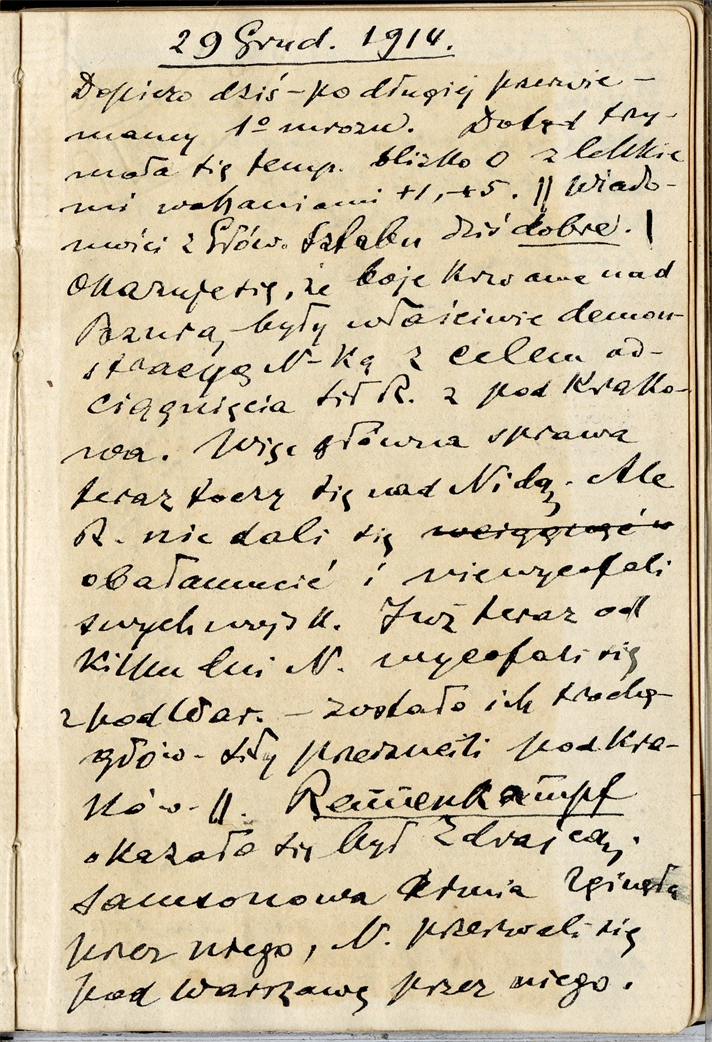 29 Grud. 1914.
Dopiero dziś – po długiej przerwie –
mamy 1° mrozu. Dotąd trzy-
mała się temp. blizko 0 z lekkie
mi wahaniami +1, +5. || Wiado-
mości z Głów. Sztabu dziś dobre. |
Okazuje się, że boje krwawe nad
Bzurą, były właściwie demon-
stracyą N-ką z celem od-
ciągnięcia sił R. z pod Krako-
wa. Więc główna sprawa
teraz toczy się nad Nidą. Ale
R. nie dali się wciągnąć w
obałamucić i niewycofali
swych wojsk. Już teraz od
kilku dni N. wycofali się
z pod War. – zostało ich trochę
głów. siły przenieśli pod Kra-
ków. ||. Rennenkampf
okazało się był zdrajcą,
Samsonowa armia zginęła
przez niego, N. przerwali się
pod Warszawę przez niego.